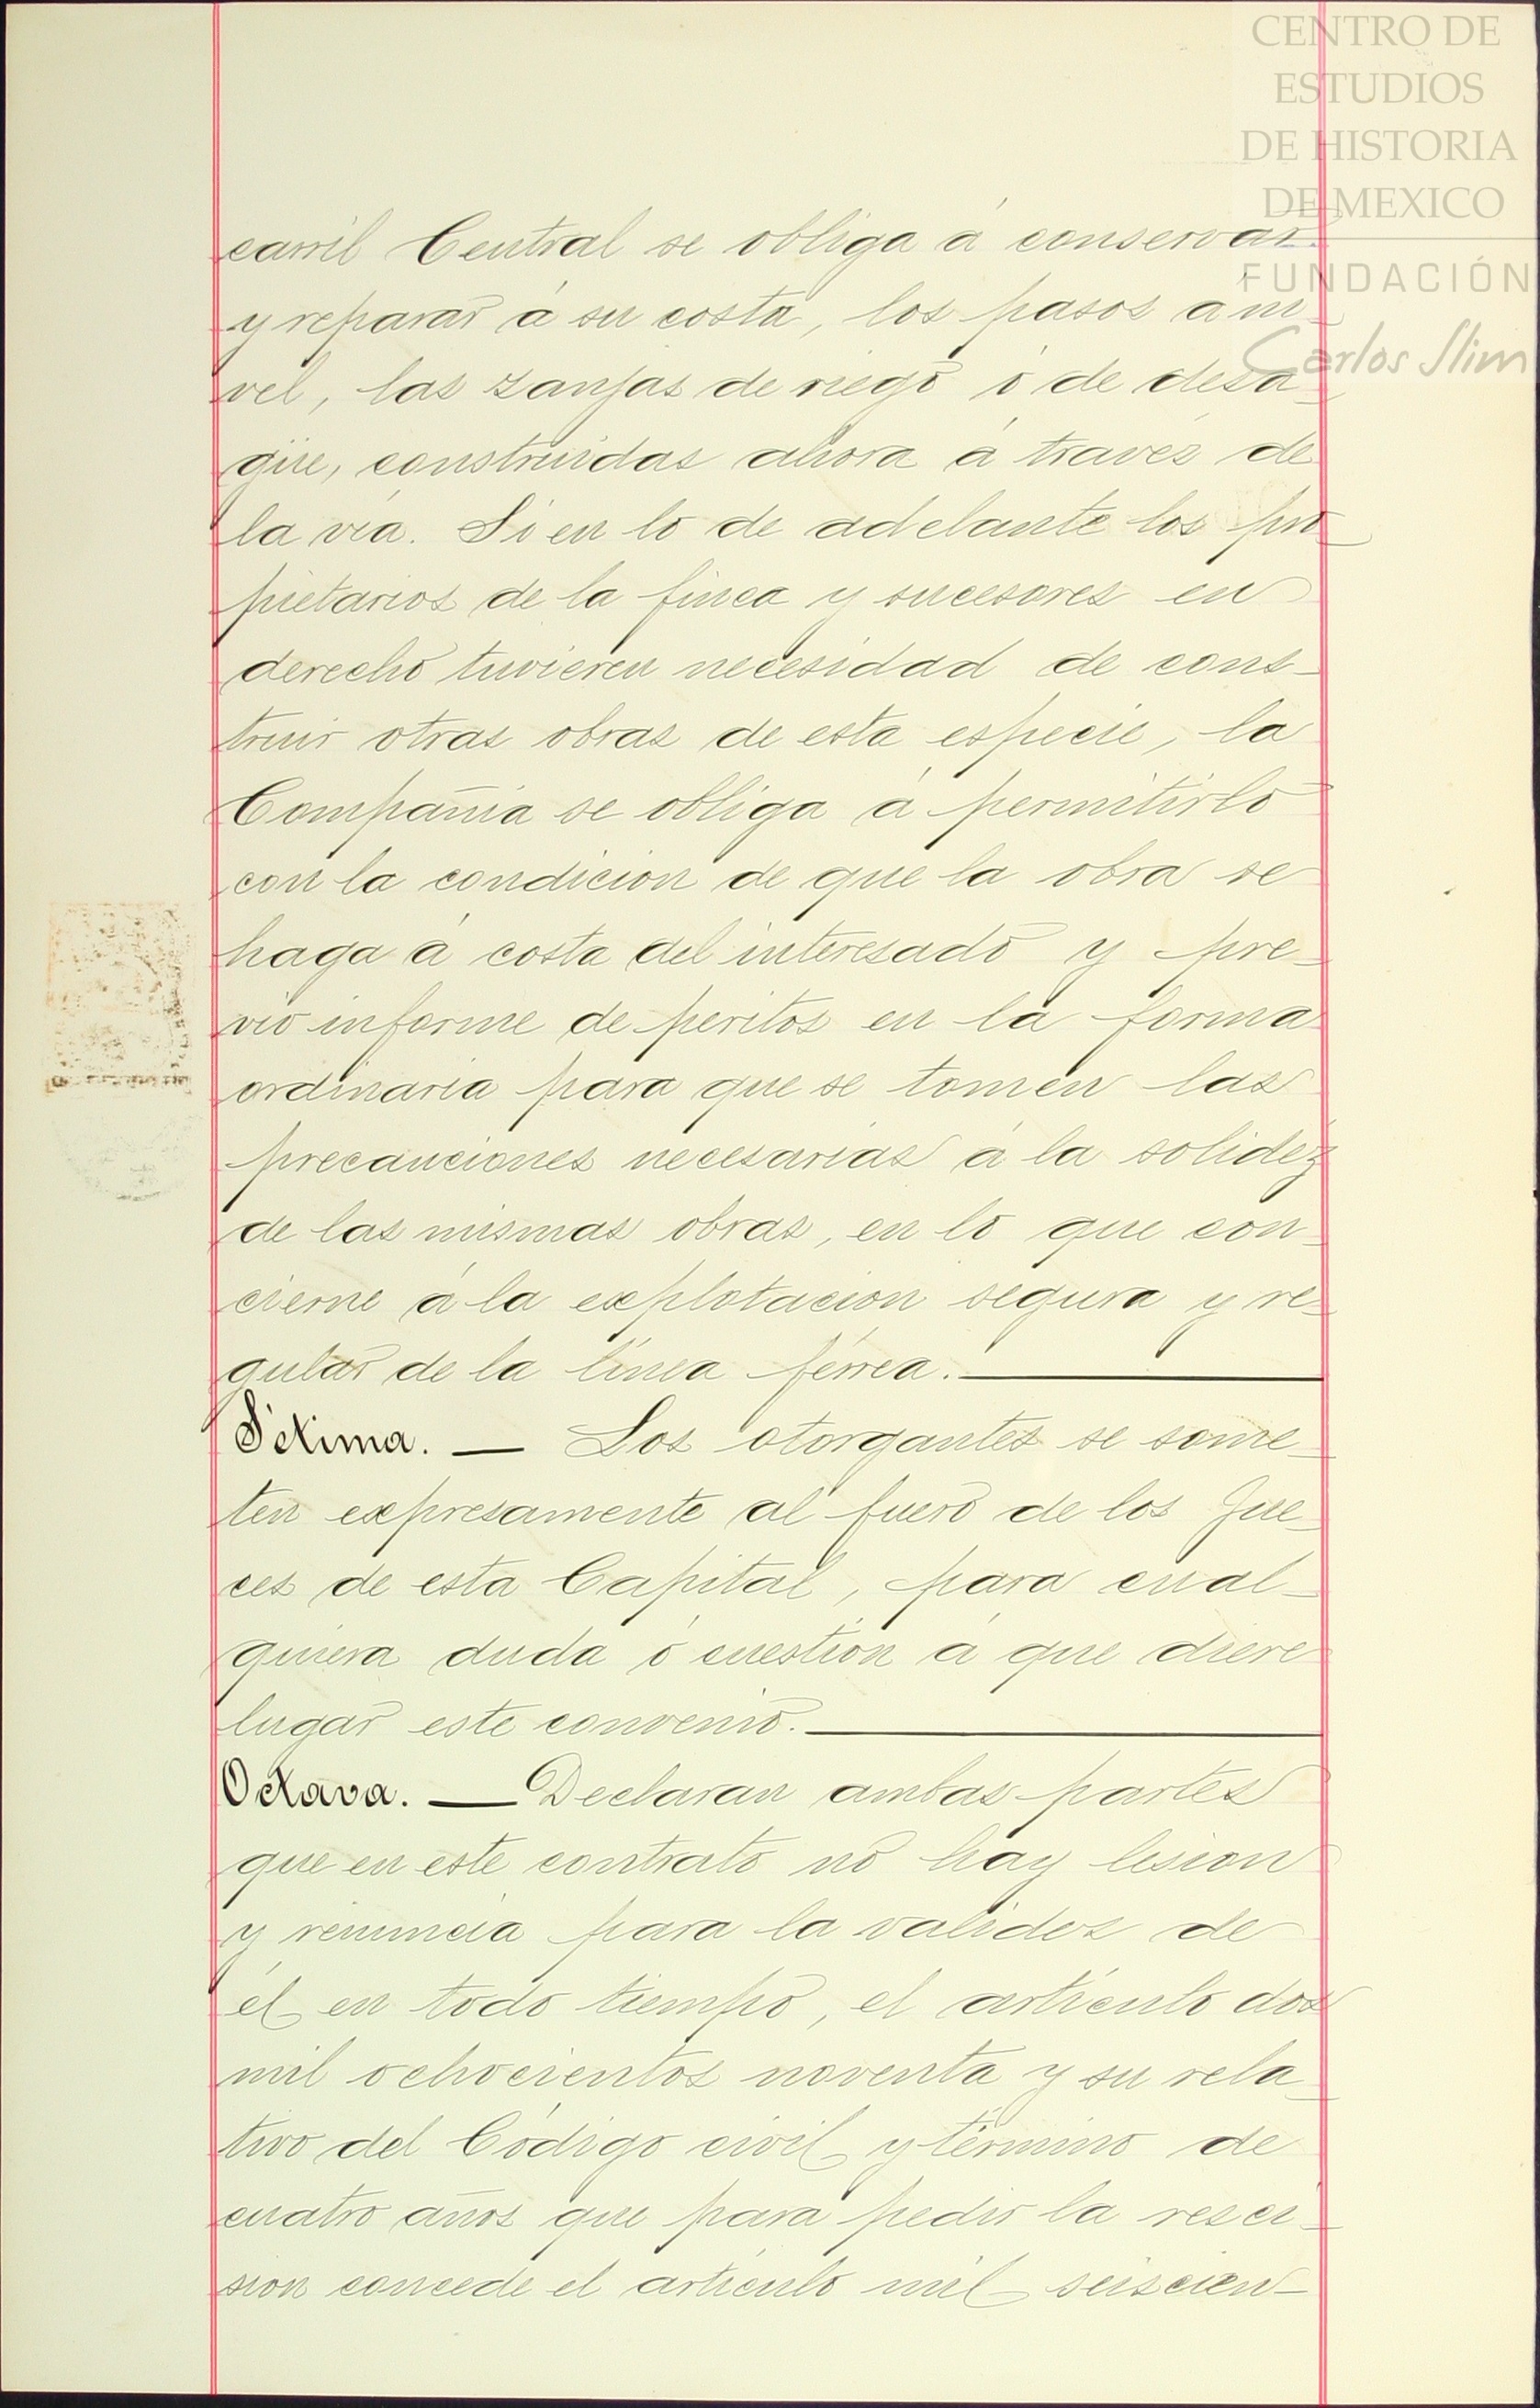 CENTRO DE
ESTUDIOS
DE HISTORIA
DE MEXICO
FUNDACIÓN
Carlos Slim
carril Central se obliga á conservar
y reparar á su costa, los pasos á ni_
vel, las zanjas de riego ó de desa_
güe, construidas ahora á través de
la vía. Si en lo de adelante los pro_
pietarios de la finca y sucesores en
derecho tuvieren necesidad de cons_
truir otras obras de esta especie, la
Compañia se obliga á permitirlo
con la condicion de que la obra se
haga á costa del interesado y pre_
vio informe de peritos en la forma
ordinaria para que se tomen las
precauciones necesarias á la solidez
de las mismas obras, en lo que con_
cierne á la explotacion segura y re_
gular de la línea férrea.
Sétima. — Los otorgantes se some_
ten expresamente al fuero de los Jue_
ces de esta Capital, para cual_
quiera duda ó cuestion á que diere
lugar este convenio.
Octava. — Declaran ambas partes
que en este contrato no hay lesion
y renuncia para la validez de
él en todo tiempo, el artículo dos
mil ochocientos noventa y su rela_
tivo del Código civil y término de
cuatro años que para pedir la resci_
sion concede el artículo mil seiscien_